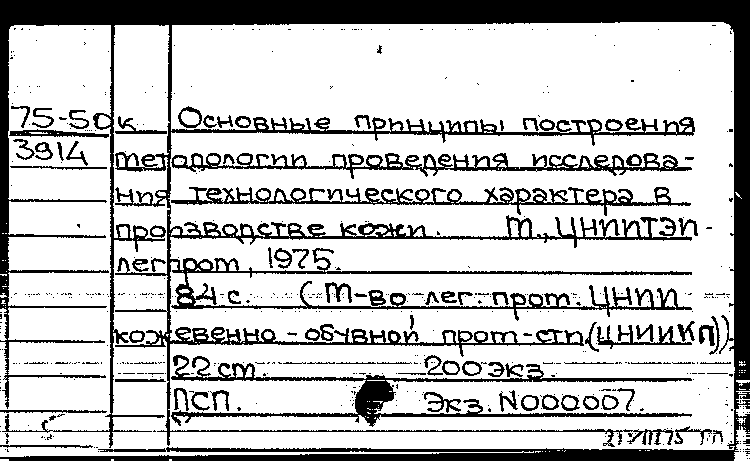 75-50к Основные принципы построения
3914 методологии проведения исследова-
ния технологического характера в
производстве кожи. М., ЦНИИТЭИ-
легпром, 1975.
84 с. (М-во лег. пром. ЦНИИ
кожевенно-обувной пром-сти.(ЦНИИКП))
22 см. 200 экз.
ДСП. Экз. N000007.